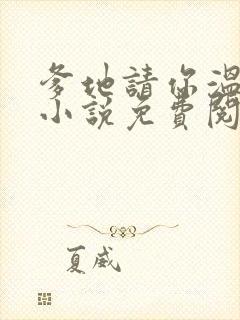 爹地請你溫
小說免費閱
夏威